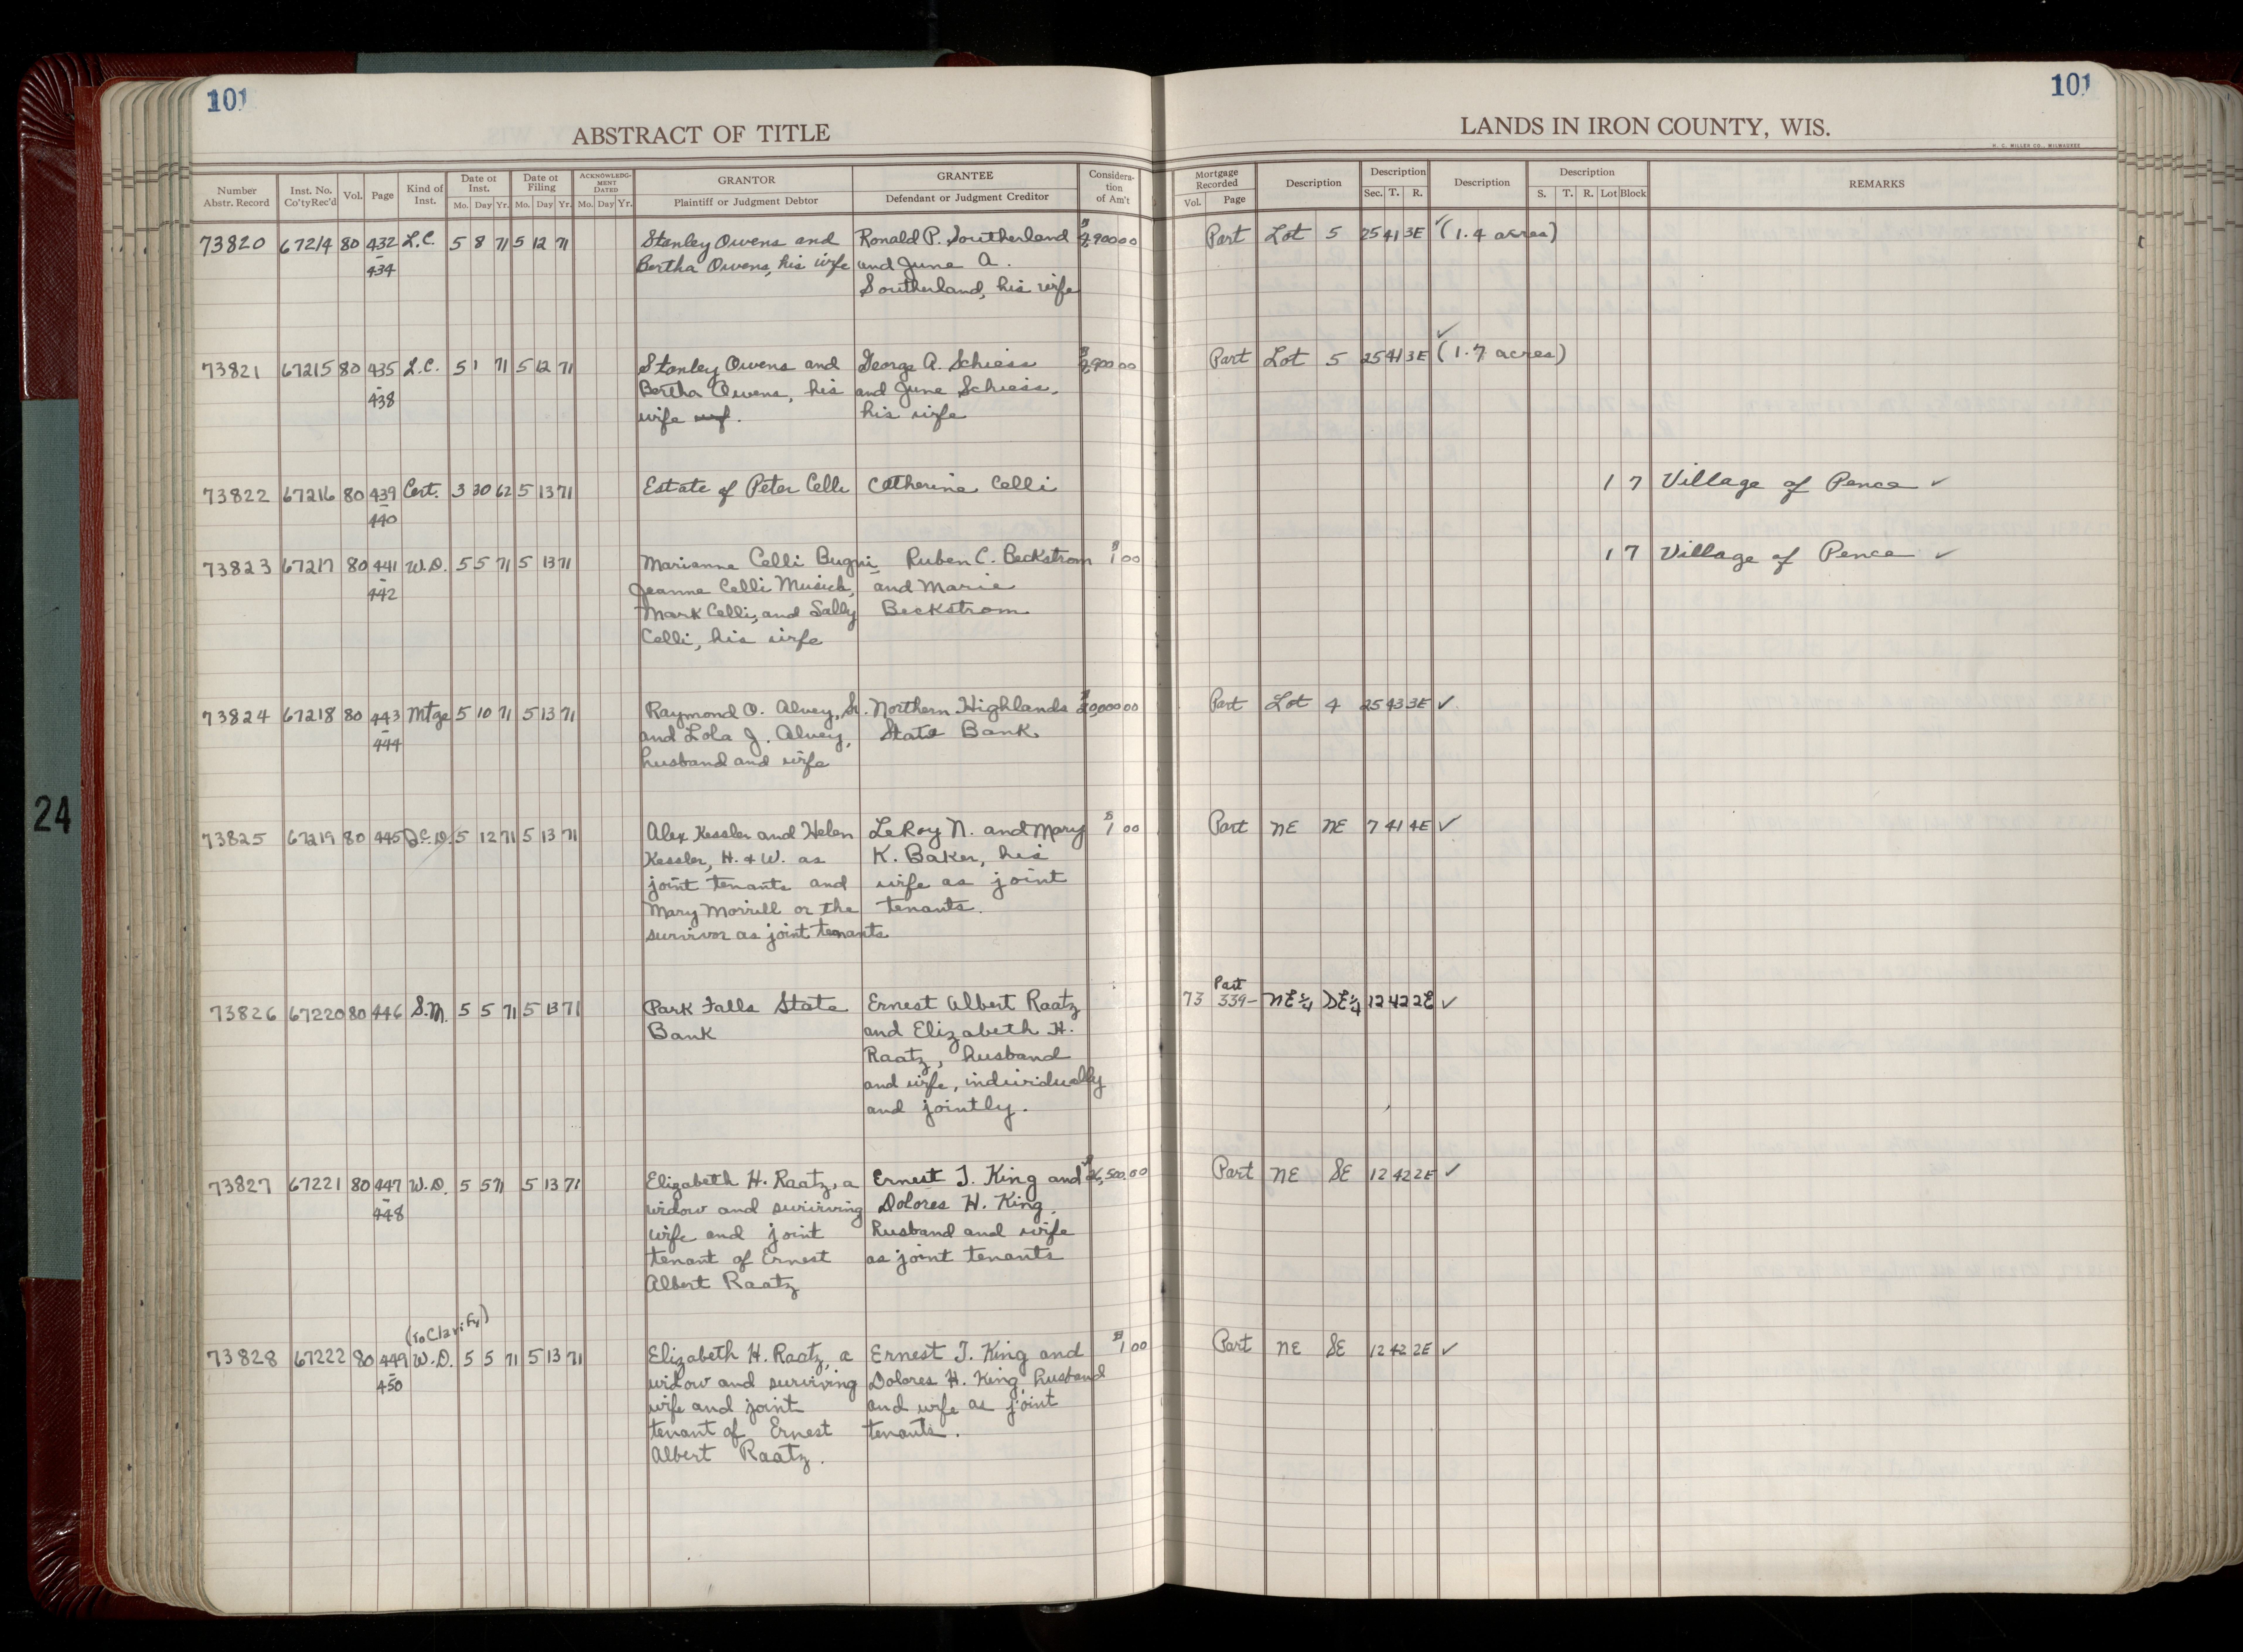 101
101
ABSTRACT OF TITLE
LANDS IN IRON COUNTY, WIS.
H. C. MILLER CO., MILWAUKEE
Number Abstr. Record Inst. No. Co'ty Rec'd Vol. Page Kind of Inst. Date of Inst. Mo. Day Yr. Date of Filing Mo. Day Yr. ACKNOWLEDGMENT DATED Mo. Day Yr. GRANTOR Plaintiff or Judgment Debtor GRANTEE Defendant or Judgment Creditor Consideration of Am't Mortgage Recorded Vol. Page Description Description Sec. T. R. Description Description S. T. R. Lot Block REMARKS
73820 67214 80 432 L.C. 5 8 71 5 12 71 Stanley Owens and Ronald P. Southerland $ 2,900 00 Part Lot 5 25 41 3E ✓ (1.4 acres)
- 434 Bertha Owens, his wife and June A.
Southerland, his wife
73821 67215 80 435 L.C. 5 1 71 5 12 71 Stanley Owens and George A. Schiess $ 2,900 00 Part Lot 5 25 41 3E ✓ (1.7 acres)
- 438 Bertha Owens, his and June Schiess,
wife his wife
73822 67216 80 439 Cert. 3 30 62 5 13 71 Estate of Peter Celli Catherine Celli 1 7 Village of Pence ✓
- 440
73823 67217 80 441 W.D. 5 5 71 5 13 71 Marianne Celli Bugni, Ruben C. Beckstrom $ 1 00 1 7 Village of Pence ✓
- 442 Jeanne Celli Musich, and Marie
Mark Celli, and Sally Beckstrom
Celli, his wife
73824 67218 80 443 Mtge 5 10 71 5 13 71 Raymond O. Alvey, Sr. Northern Highlands $ 20,000 00 Part Lot 4 25 43 3E ✓
- 444 and Lola J. Alvey, State Bank
husband and wife
73825 67219 80 445 Q.C.D. 5 12 71 5 13 71 Alex Kessler and Helen LeRoy N. and Mary $ 1 00 Part NE NE 7 41 4E ✓
Kessler, H. & W. as K. Baker, his
joint tenants and wife as joint
Mary Morrill or the tenants.
survivor as joint tenants
73826 67220 80 446 S.M. 5 5 71 5 13 71 Park Falls State Ernest Albert Raatz 73 Part 339- NE¼ SE¼ 12 42 2E ✓
Bank and Elizabeth H.
Raatz, husband
and wife, individually
and jointly.
73827 67221 80 447 W.D. 5 5 71 5 13 71 Elizabeth H. Raatz, a Ernest J. King and $ ,500.00 Part NE SE 12 42 2E ✓
- 448 widow and surviving Dolores H. King,
wife and joint husband and wife
tenant of Ernest as joint tenants
Albert Raatz
(To Clarify)
73828 67222 80 449 W.D. 5 5 71 5 13 71 Elizabeth H. Raatz, a Ernest J. King and $ 1 00 Part NE SE 12 42 2E ✓
- 450 widow and surviving Dolores H. King, husband
wife and joint and wife as joint
tenant of Ernest tenants.
Albert Raatz.
24